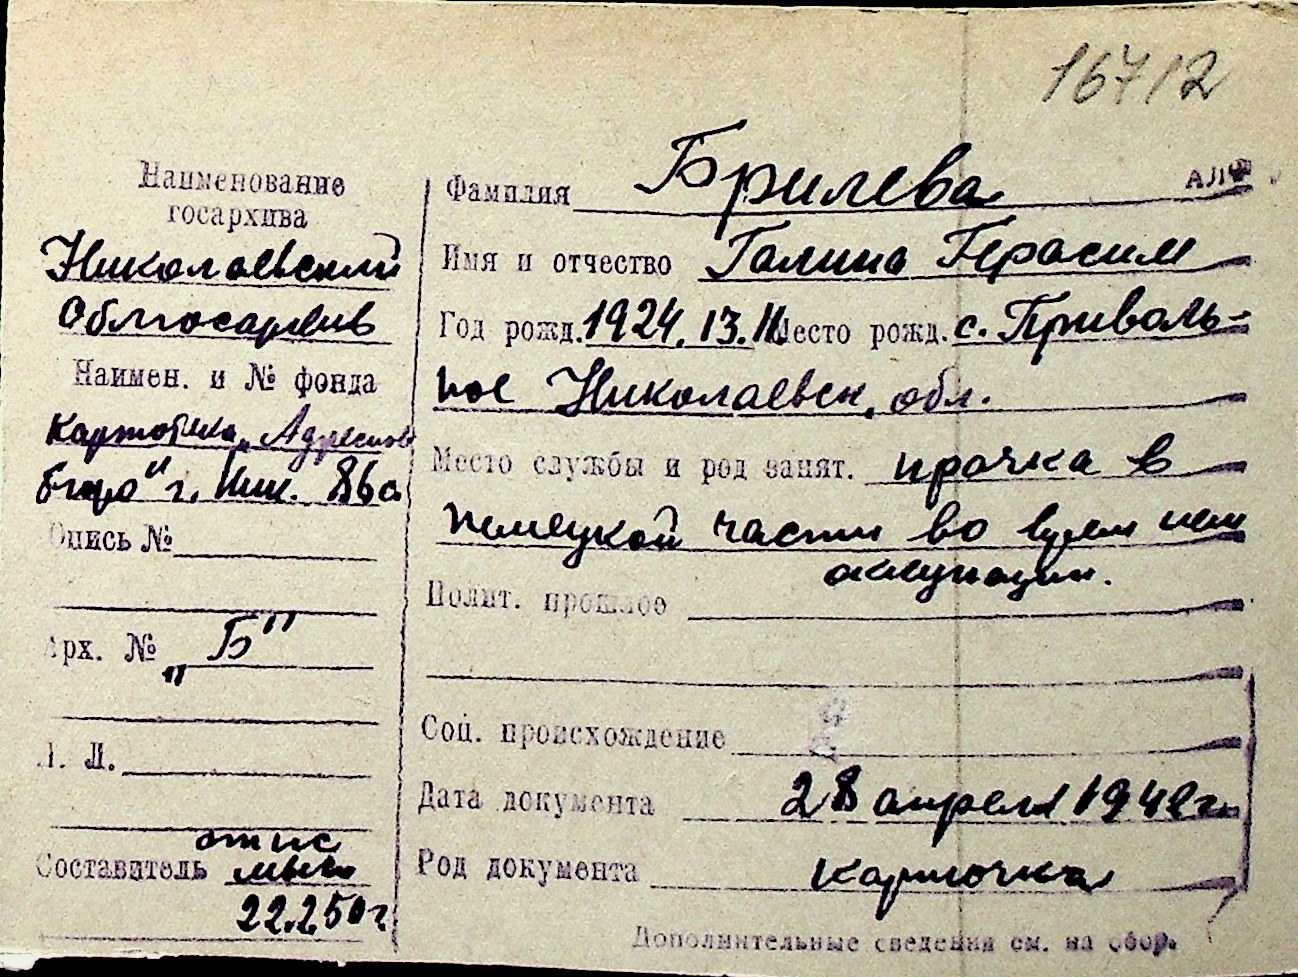 16712
Наименование
госархива
Николаевский
Облгосархив
Наимен. и № фонда
Картотека „Адресного
бюро" г. Ник.
Опись №
Арх. № „Б"
Л. Л.
Составитель
22.2.50 г.
Фамилия Брилева
Имя и отчество Галина Герасим
Год рожд. 1924. 13. Место рожд. с. Приволь-
ное Николаевск. обл.
Место службы и род занят. прачка в
немецкой части во время нем
оккупации.
Полит. прошлое
Соц. происхождение
Дата документа 28 апреля 1942 г.
Род документа карточка
Дополнительные сведения см. на обор.